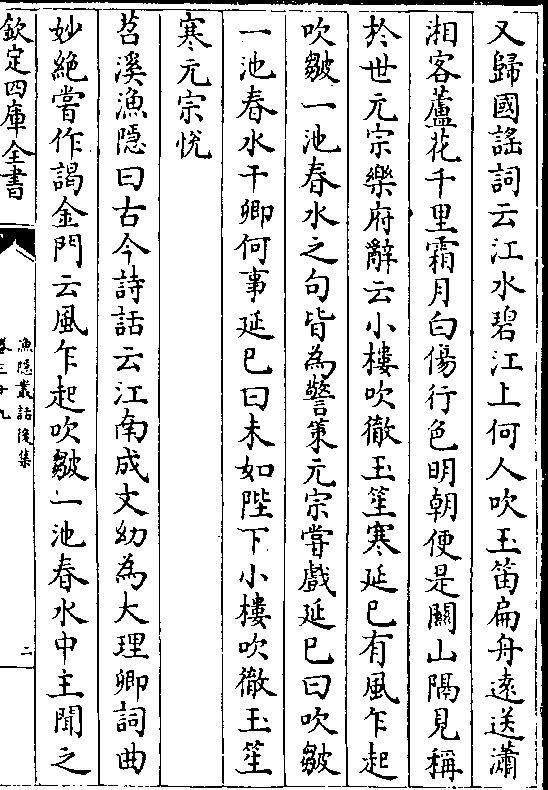 又歸國謡詞云江水碧江上何人吹玉笛扁舟逺送瀟
湘客蘆花千里霜月白傷行色明朝便是關山隔見稱
於世元宗樂府辭云小樓吹徹玉笙寒延巳有風乍起
吹皺一池春水之句皆為警策元宗嘗戲延巳曰吹皺
一池春水干卿何事延巳曰未如陛下小樓吹徹玉笙
寒元宗悦
苕溪漁隱曰古今詩話云江南成文幼為大理卿詞曲
妙絶嘗作謁金門云風乍起吹皺一池春水中主聞之
欽定四庫全書
漁隱叢話後集
卷三十九
二